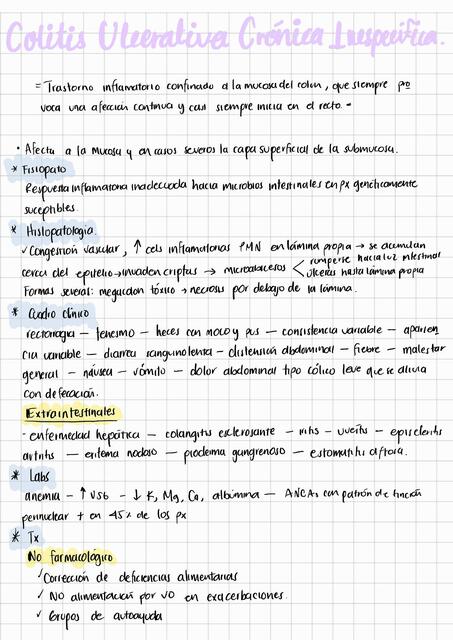 Colitis Ulcerativa Crónica Inespecífica.
= Trastorno inflamatorio confinado a la mucosa del colon, que siempre pro
voca una afección continua y casi siempre inicia en el recto. =
• Afecta a la mucosa y en casos severos la capa superficial de la submucosa.
* Fisiopato
Respuesta inflamatoria inadecuada hacia microbios intestinales en px genéticamente
suceptibles.
* Histopatología
✓ Congestión vascular, ↑ cels inflamatorias PMN en lámina propia → se acumulan
cerca del epitelio → invaden criptas → microabscesos < romperse hacia luz intestinal
úlceras hasta lámina propia
Formas several: megacolon tóxico → necrosis por debajo de la lámina.
* Cuadro clínico
rectorragia — tenesmo — heces con moco y pus — consistencia variable — aparien
cia variable — diarrea sanguinolenta — distensión abdominal — fiebre — malestar
general — náusea — vómito — dolor abdominal tipo cólico leve que se alivia
con defecación.
Extraintestinales
- enfermedad hepática — colangitis esclerosante — iritis — uveitis — epiescleritis
artritis — eritema nodoso — pioderma gangrenoso — estomatitis aftosa.
* Labs
anemia - ↑ VSG - ↓ K, Mg, Ca, albúmina — ANCAs con patrón de tinción
perinuclear + en 45% de los px
* Tx
No farmacológico
✓ Corrección de deficiencias alimentarias
✓ No alimentación por VO en exacerbaciones.
✓ Grupos de autoayuda